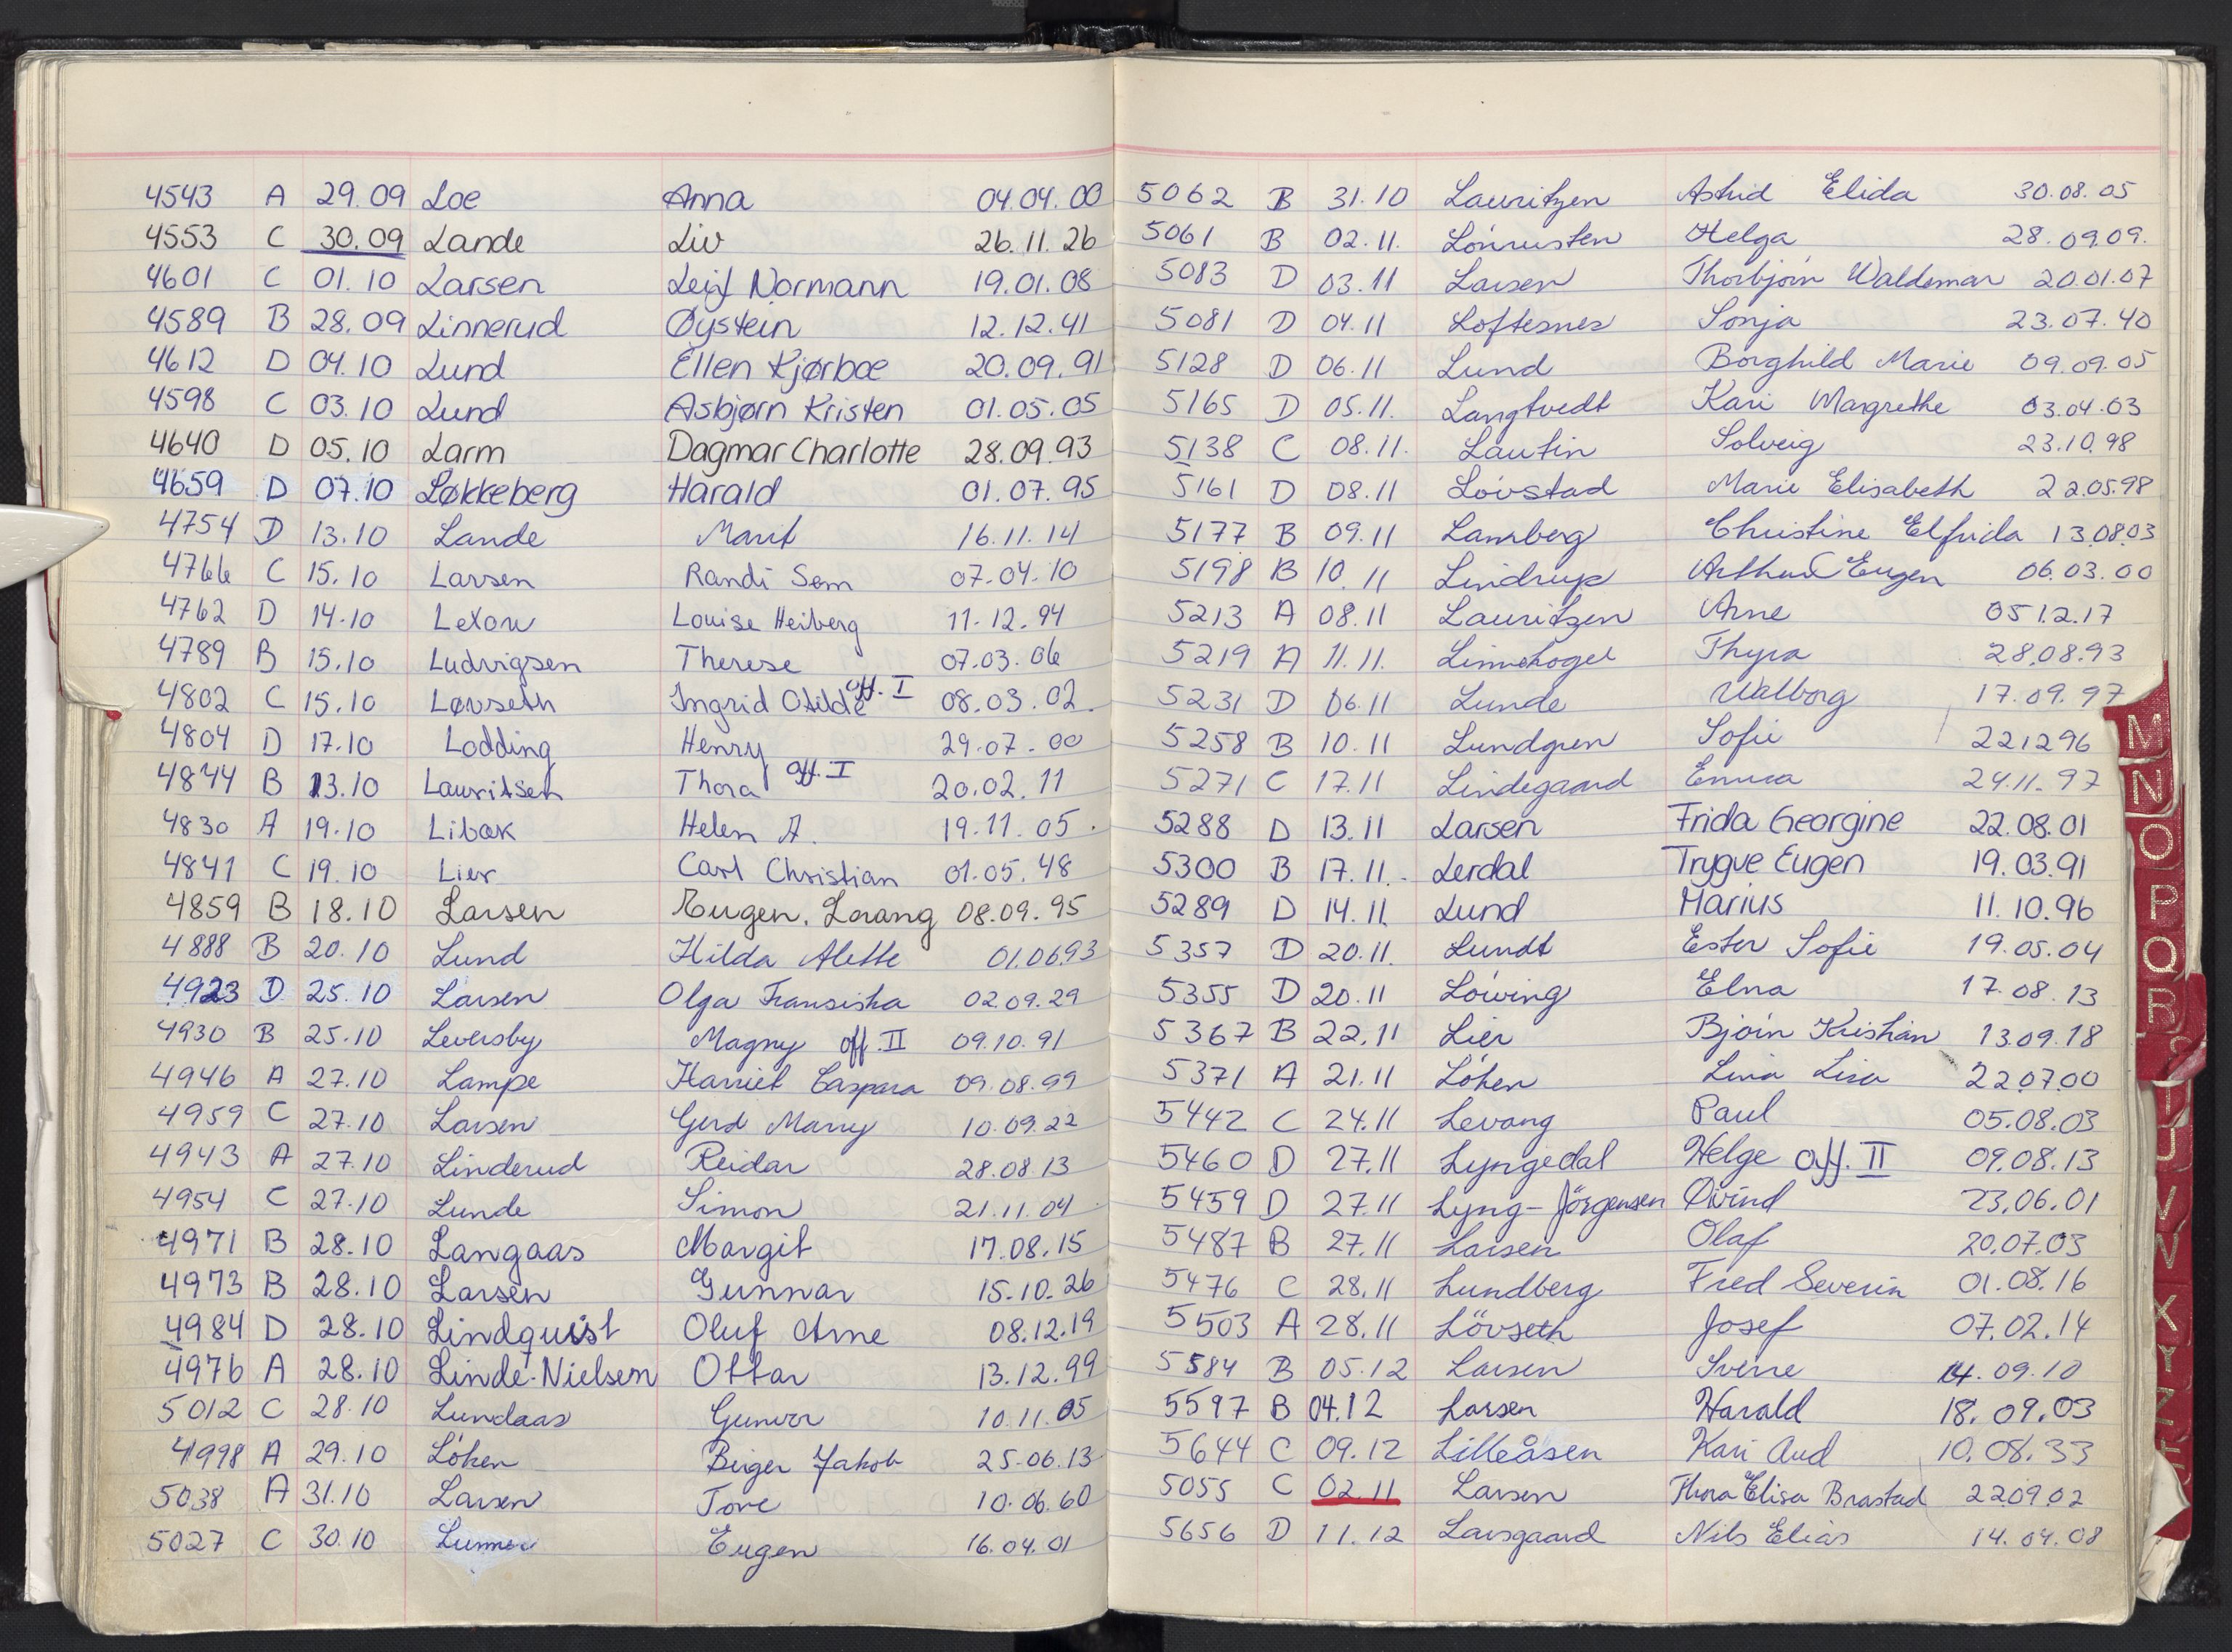 4543 A 29.09 Loe Anna 04.04.00
4553 C 30.09 Lande Liv 26.11.26
4601 C 01.10 Larsen Leif Normann 19.01.08
4589 B 28.09 Linnerud Øystein 12.12.41
4612 D 04.10 Lund Ellen Kjørboe 20.09.91
4598 C 03.10 Lund Asbjørn Kristen 01.05.05
4640 D 05.10 Larm Dagmar Charlotte 28.09.93
4659 D 07.10 Løkkeberg Harald 01.07.95
4754 D 13.10 Lande Marit 16.11.14
4766 C 15.10 Larsen Randi Sem 07.04.10
4762 D 14.10 Lexow Louise Heiberg 11.12.94
4789 B 15.10 Ludvigsen Therese 07.03.06
4802 C 15.10 Løvseth Ingrid Otilde off. I 08.03.02.
4804 D 17.10 Lodding Henry 29.07.00
4844 B 13.10 Lauritsen Thora off. I 20.02.11
4830 A 19.10 Libæk Helen A. 19.11.05.
4841 C 19.10 Lier Carl Christian 01.05.48
4859 B 18.10 Larsen Eugen. Lorang 08.09.95
4888 B 20.10 Lund Hilda Alette 01.06.93
4923 D 25.10 Larsen Olga Fransiska 02.09.29
4930 B 25.10 Leversby Magny off. II 09.10.91
4946 A 27.10 Lampe Harriet Caspara 09.08.99
4959 C 27.10 Larsen Gerd Marry 10.09.22
4943 A 27.10 Linderud Reidar 28.08.13
4954 C 27.10 Lunde Simon 21.11.04
4971 B 28.10 Langaas Margit 17.08.15
4973 B 28.10 Larsen Gunnar 15.10.26
4984 D 28.10 Lindquist Oluf Arne 08.12.19
4976 A 28.10 Linde-Nielsen Ottar 13.12.99
5012 C 28.10 Lundaas Gunvor 10.11.05
4998 A 29.10 Löken Birger Jakob 25.06.13
5038 A 31.10 Larsen Tove 10.06.60
5027 C 30.10 Eugen 16.04.01
5062 B 31.10 Lauritzen Astrid Elida 30.08.05
5061 B 02.11. Lönrusten Helga 28.09.09.
5083 D 03.11 Larsen Thorbjörn Waldemar 20.01.07
5081 D 04.11 Loftesnes Sonja 23.07.40
5128 D 06.11 Lund Borghild Marie 09.09.05
5165 D 05.11. Langtvedt Kari Margrethe 03.04.03
5138 C 08.11. Lautin Solveig 23.10.98
5161 D 08.11 Lövstad Marie Elisabeth 22.05.98
5177 B 09.11 Lamberg Christine Elfrida 13.08.03
5198 B 10.11 Lindrup Arthur Eugen 06.03.00
5213 A 08.11 Lauritzen Arne 05 12.17
5219 A 11.11. Thyra 28.08.93
5231 D 06.11 Lunde Walborg 17.09.97
5258 B 10.11 Lundgren Sofie 221296
5271 C 17.11 Lindegaard Emma 24.11.97
5288 D 13.11 Larsen Frida Georgine 22.08.01
5300 B 17.11. Lerdal Trygve Eugen 19.03.91
5289 D 14.11. Lund Marius 11.10.96
5357 D 20.11. Lundt Ester Sofie 19.05.04
5355 D 20.11 Löwing Elna 17.08.13
5367 B 22.11 Lier Bjørn Kristian 13.09.18
5371 A 21.11 Löken Lina Lisa 22.07.00
5442 C 24.11 Levang Paul 05.08.03
5460 D 27.11 Lyngedal Helge off. II 09.08.13
5459 D 27.11 Lyng-Jörgensen Øivind 23.06.01
5487 B 27.11 Larsen Olaf 20.07.03
5476 C 28.11 Lundberg Fred Severin 01.08.16
5503 A 28.11 Lövseth Josef 07.02.14
5584 B 05.12 Larsen Sverre 14.09.10
5597 B 04.12 Larsen Harald 18.09.03
5644 C 09.12 Lilleåsen Kari Aud 10.08.33
5055 C 02.11 Larsen Thora Elisa Brastad 220902
5656 D 11.12 Larsgaard Nils Elias 14.04.08
M
N
O
P
Q
R
U
V
W
X
Y
Z